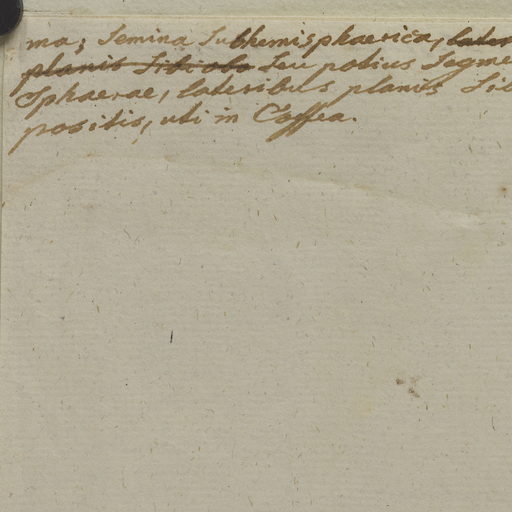 ma; Semina Subhemisphaerica, later
planis Sibi olo Seu potius Segme
Sphaerae, lateribus planis Sib
positis, uti in Coffea.